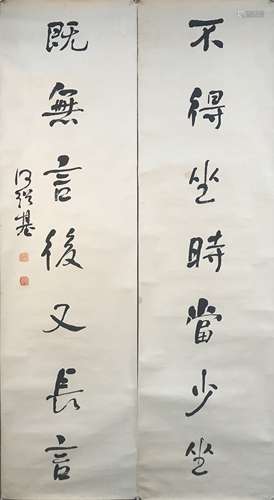 不得坐時當少坐
既無言後又長言
何紹基